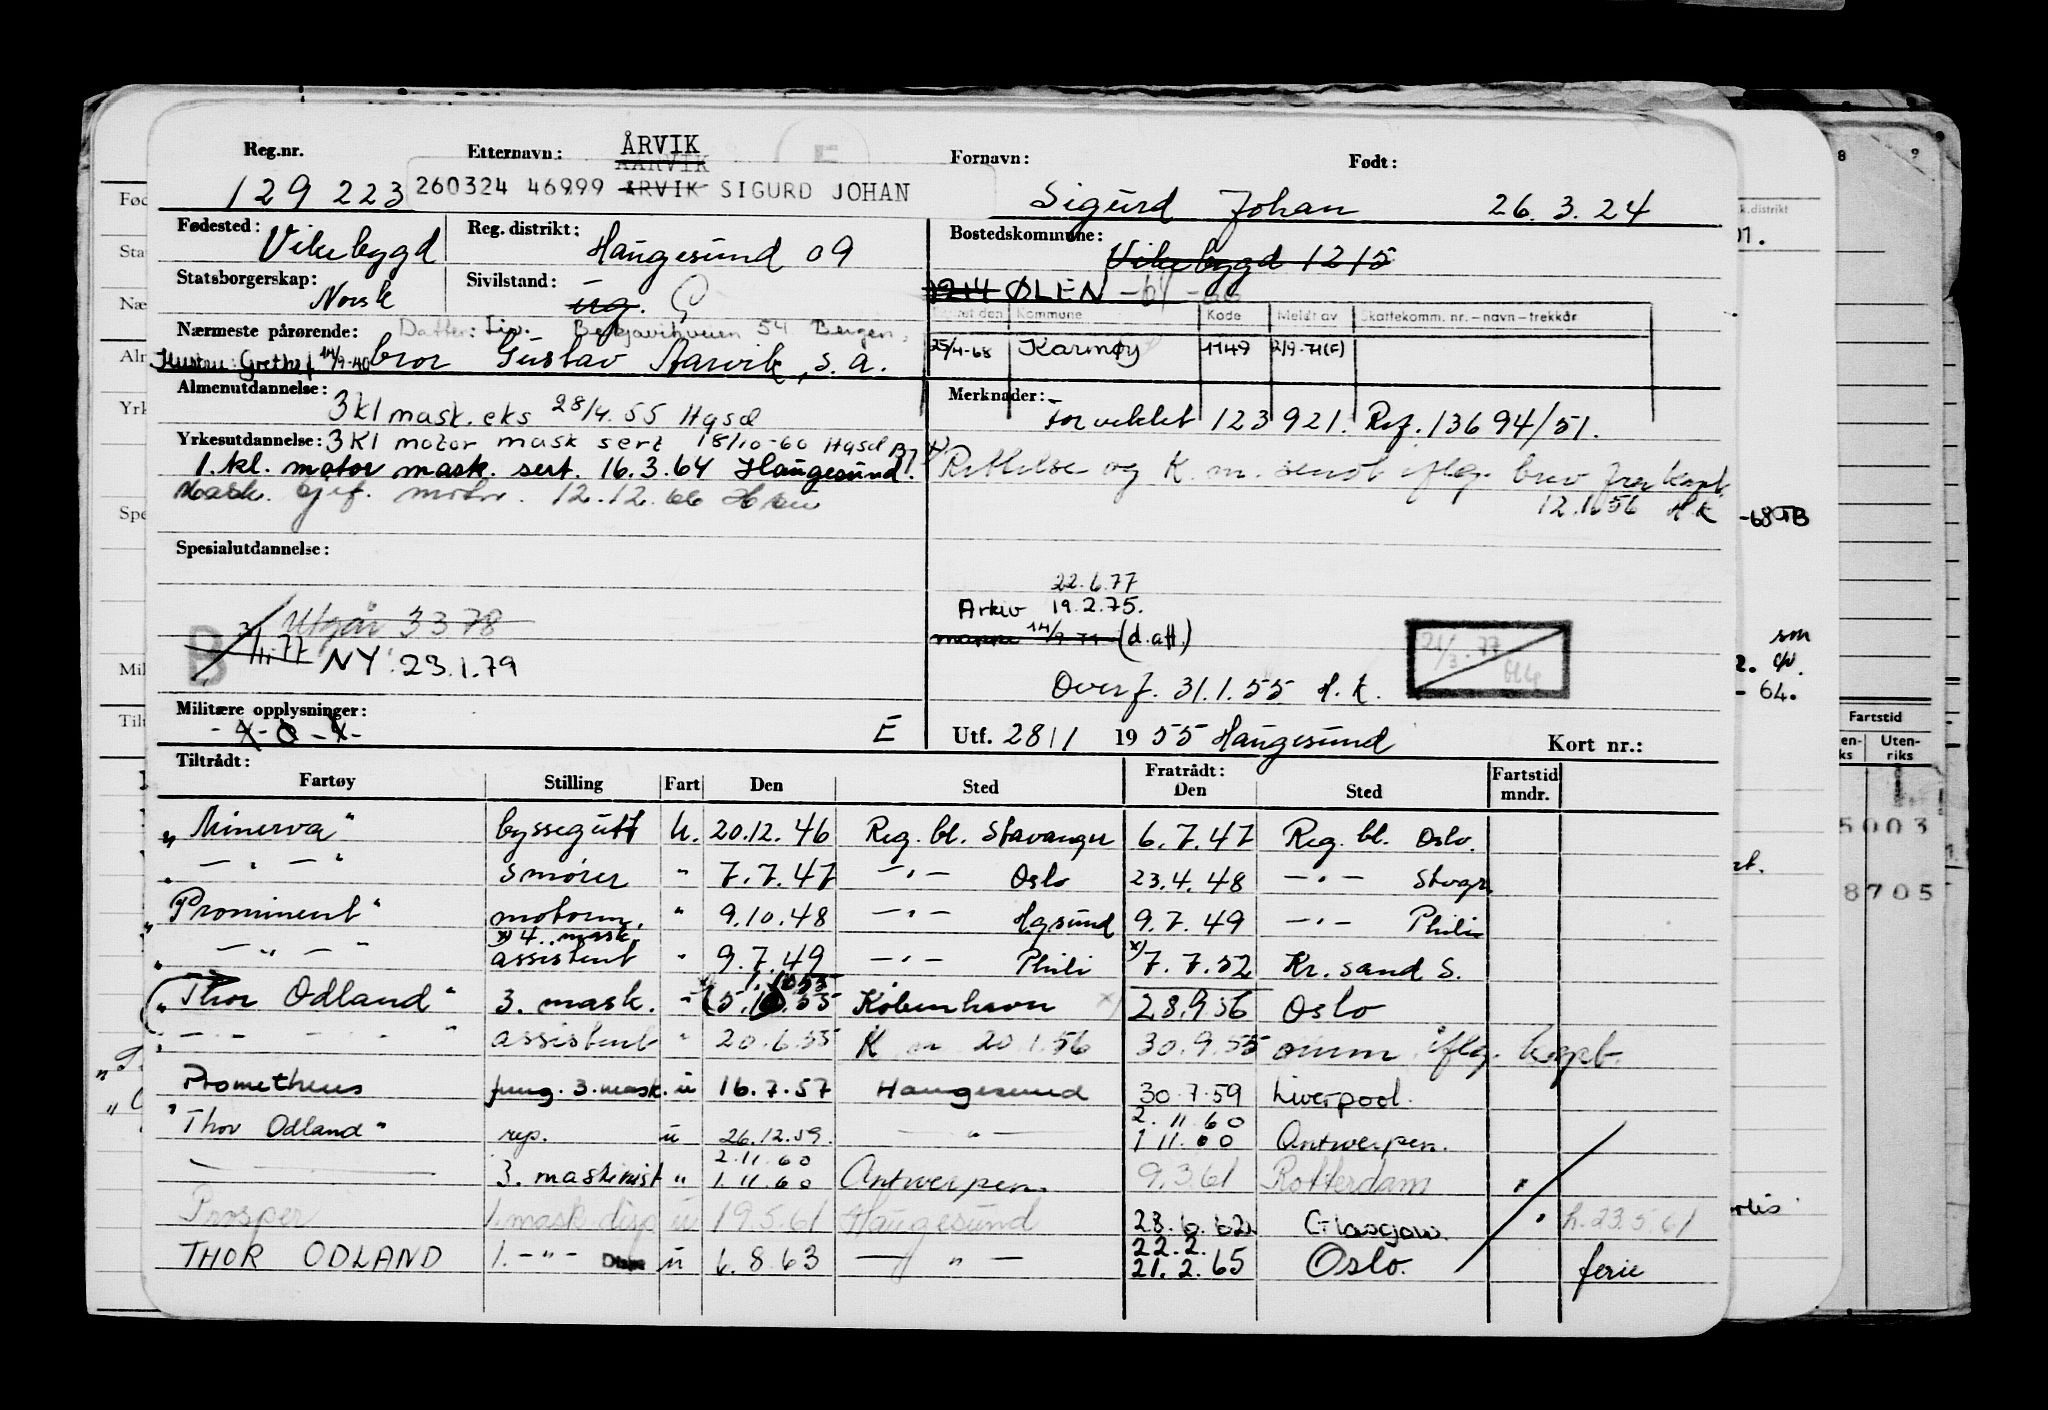 Reg.nr. Etternavn: ÅRVIK Fornavn: Født:
AARVIK
129 223 260324 46999 ARVIK SIGURD JOHAN Sigurd Johan 26.3.24
Fødested: Vikebygd Reg. distrikt: Haugesund 09 Bostedskommune: Vikebygd 1215
Statsborgerskap: Norsk Sivilstand: ug. G 1214 ØLEN -64
Kommune Kode Meldt av Skattekomm. nr.–navn–trekkår
Nærmeste pårørende: Datter: Liv. 54 Bergen,
Hustru: Grethe f 14/9-40 bror Gustav Aarvik, s.a. 25/4-68 Karmøy 1149 2/9-71(F)
Almenutdannelse: 3 kl mask. eks 28/4.55 Hgsd Merknader: Forvekslet 123921. Ref. 13694/51.
Yrkesutdannelse: 3 Kl motor mask sert 18/10-60 Hgsd
1. kl. motor mask. sert. 16.3.64 Haugesund. Rettelse og K.m. sendt iflg. brev fra kapt.
Mask. sjef. motor. 12.12.66 12.1.56 H.K -68 TB
Spesialutdannelse:
22.6.77
Arkiv 19.2.75.
Utgår 3 3 78
(d.att.) 21/3.77
B NY: 23.1.79
Overf. 31.1.55 H.K. - 64.
Militære opplysninger:
-x-o-x- E Utf. 28/1 1955 Haugesund Kort nr.:
Tiltrådt: Fratrådt: Fartstid
Fartøy Stilling Fart Den Sted Den Sted mndr.
"Minerva" byssegutt u. 20.12.46 Reg. bl. Stavanger 6.7.47 Reg. bl. Oslo.
" — " — " smører " 7.7.47 — " — Oslo 23.4.48 — " — Stvgr
"Prominent" motorm. " 9.10.48 — " — Hgsund 9.7.49 — " — Phili
x) 4. mask.
" — " — " assistent " 9.7.49 — " — Phili x) 7.7.52 Kr.sand S.
1.10.55
"Thor Odland" 3. mask. " 5.10.55 København 28.9.56 Oslo
" — " assistent " 20.6.55 K m 20.1.56 30.9.55 omm. iflg. kapt.
Prometheus fung. 3. mask. u 16.7.57 Haugesund 30.7.59 Liverpool.
2.11.60
"Thor Odland" rep. u 26.12.59. — " — 1.11.60 Antwerpen.
2.11.60
— 3. maskinist " 1.11.60 Antwerpen. 9.3.61 Rotterdam
Prosper 1. mask. disp u 19.5.61 Haugesund 28.6.62 Glasgow. h. 23.5.61
22.2.
THOR ODLAND 1. — " — Disp u 6.8.63 — " — 21.2.65 Oslo. ferie
8 9
Fartstid
Uten-
riks
5003
8705